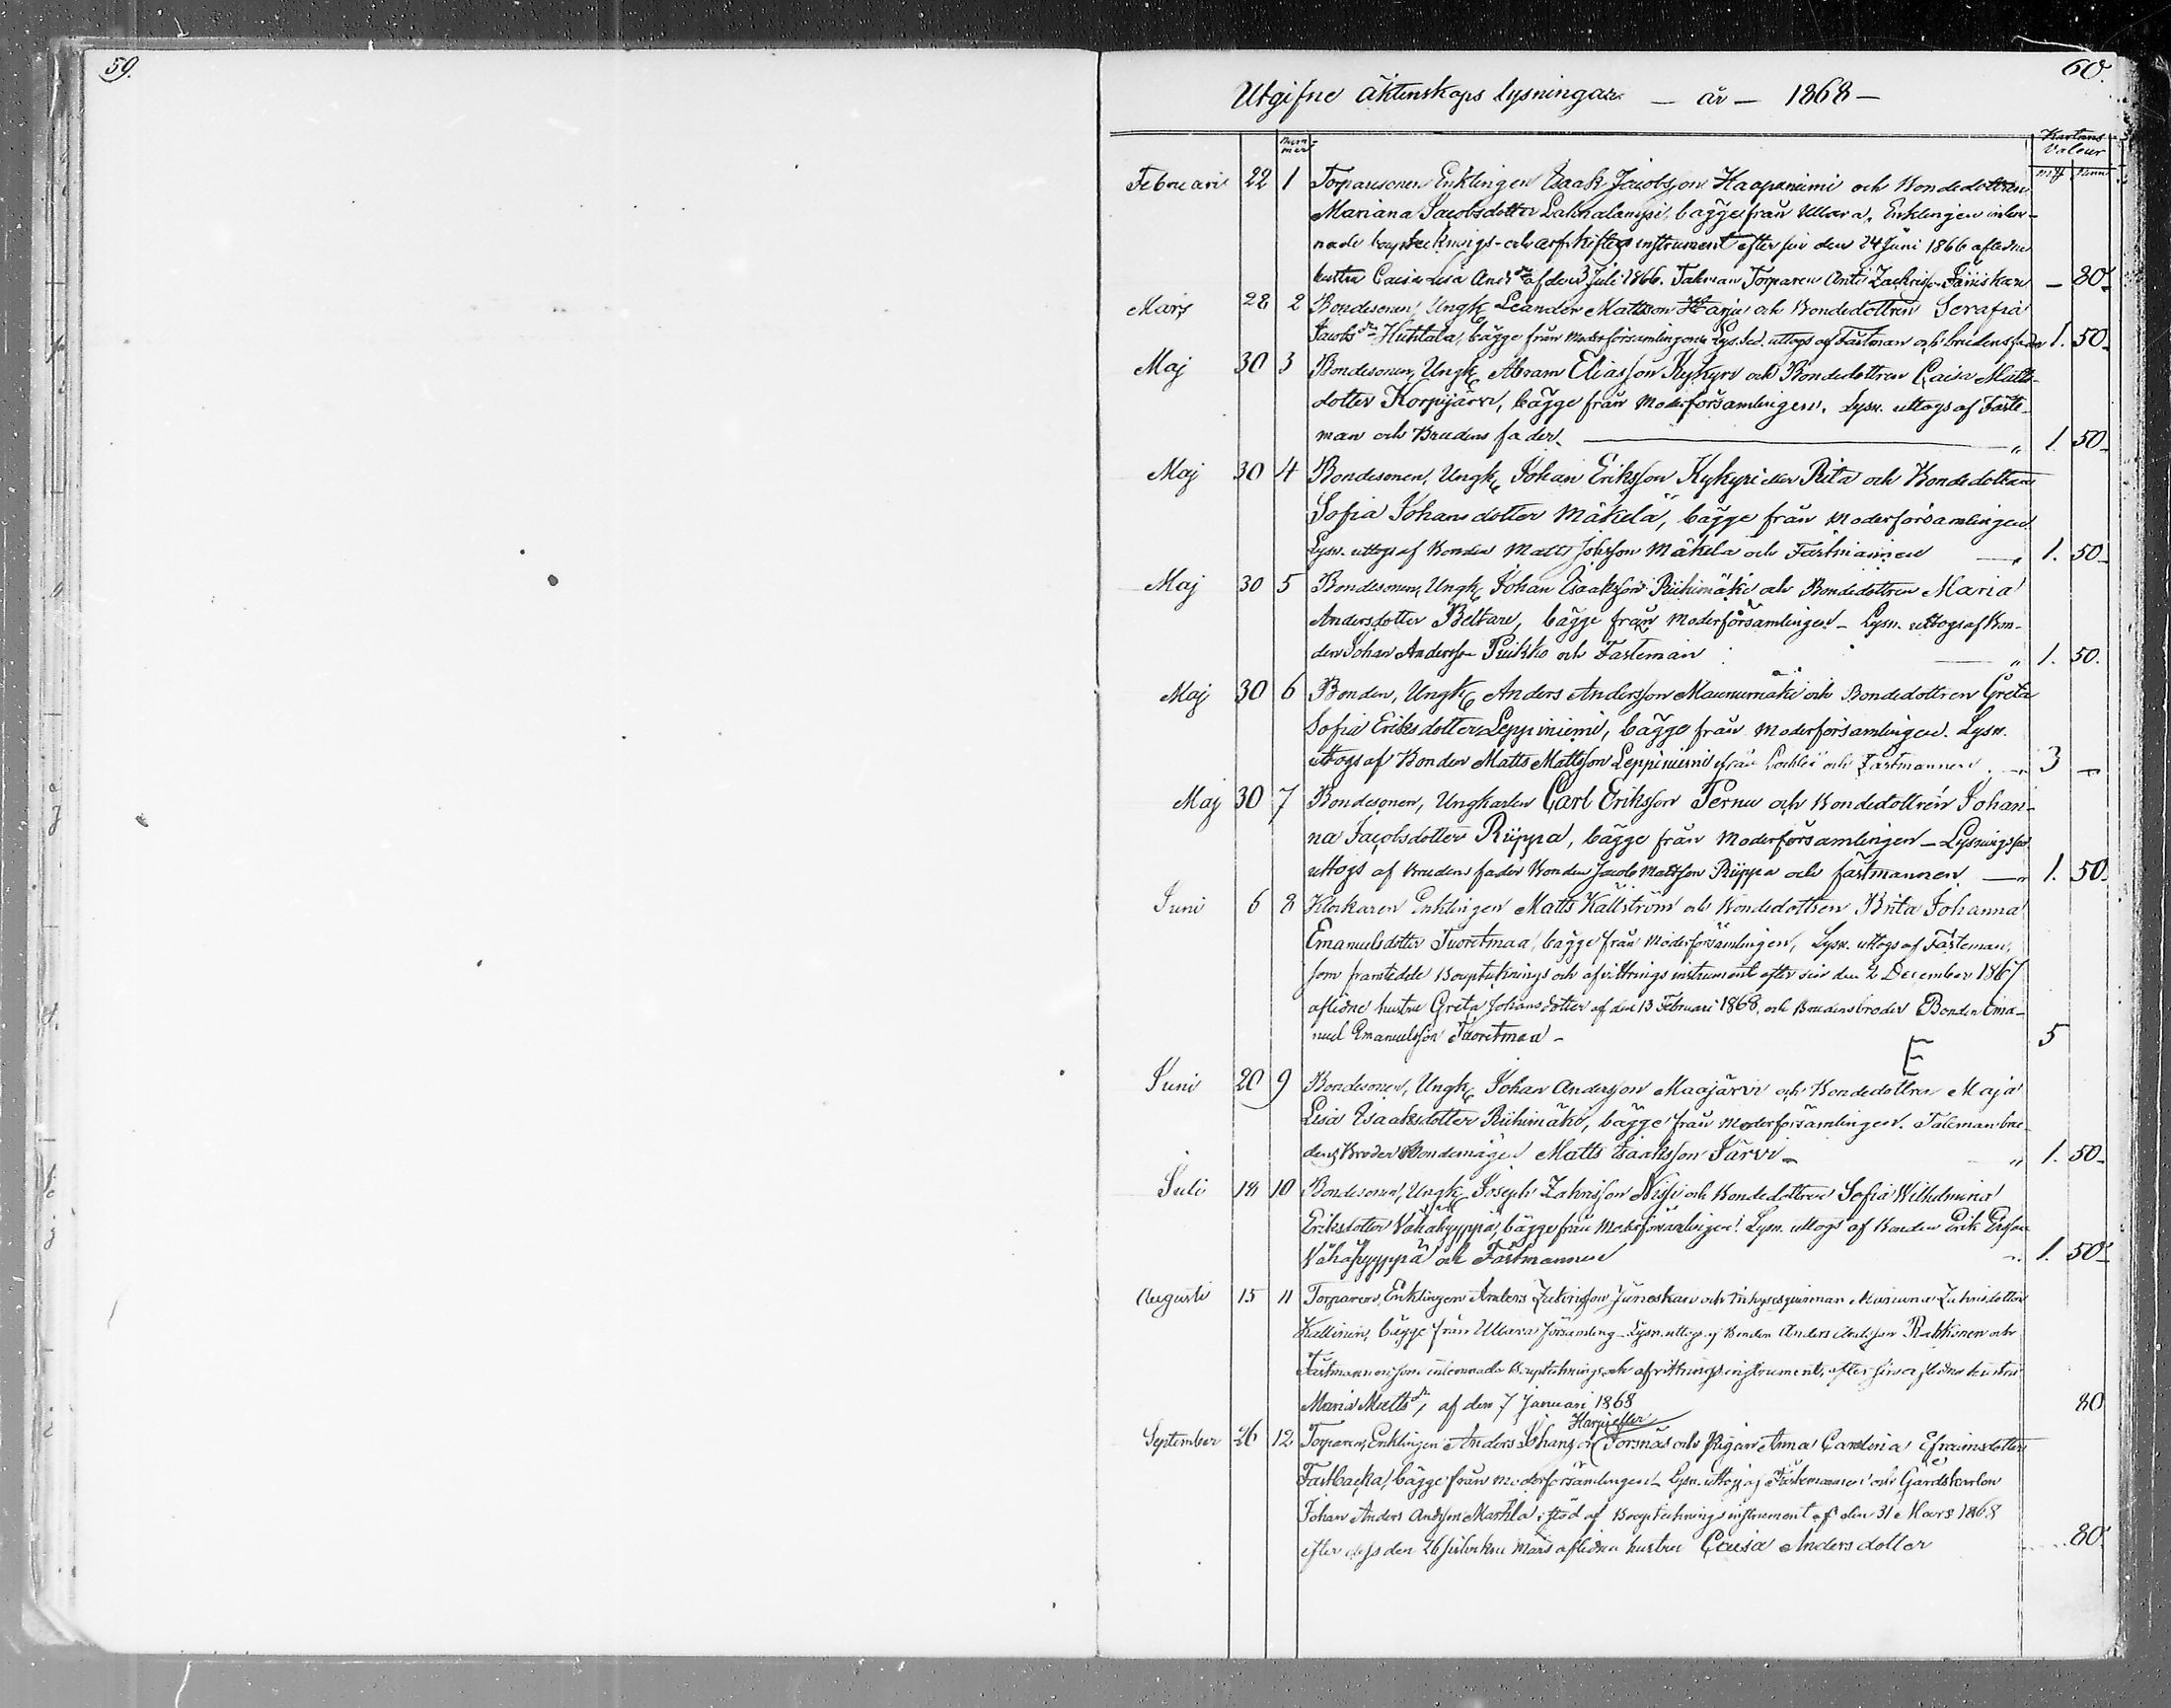 59.
60.
Utgifne äktenskaps lysningar — år — 1868 —
Nummer
Kartans Valeur
mk penni
Februari 22 1 Torparesonen Enklingen Isaak Jacobsson Haapaniemi och Bondedottren
Mariana Jacobsdotter Lahnalampi, bägge från Ullava. Enklingen inlem-
nade bouptecknings- och arfskiftes instrument efter sin den 24 Juni 1866 aflidne
hustru Caisa Lisa And:dr af den 3 Juli 1866. Talman Torparen Antti Zachrisson Jäniskan — 80
Mars 28 2 Bondesonen, Ungk. Leander Mattsson Harju och Bondedottren Serafia
Jacobsdr Huhtala, bägge från Moderförsamlingen Lys.sed. uttogs af Fästman och brudens fader 1. 50.
Maj 30 3 Bondesonen, Ungk. Abram Eliasson Kykyri och Bondedottren Caisa Matts-
dotter Korpijärvi, bägge från Moderförsamlingen. Lysn. uttogs af Fäste-
man och Brudens fader. — „ 1. 50
Maj 30 4 Bondesonen, Ungk. Johan Eriksson Kykyri eller Rita och Bondedottren
Sofia Johansdotter Mäkelä, bägge från Moderförsamlingen
Lysn. uttogs af Bonden Matts Johsson Mäkelä och Fästmannen — „ 1. 50
Maj 30 5 Bondesonen, Ungk. Johan Isaaksson Riihimäki och Bondedottren Maria
Andersdotter Beltare, bägge från Moderförsamlingen — Lysn. uttogs af Bon-
den Johan Andersson Puikko och Fästeman — „ 1. 50.
Maj 30 6 Bonden, Ungk. Anders Andersson Maunumäki och Bondedottren Greta
Sofia Eriksdotter Leppiniemi, bägge från Moderförsamlingen. Lysn.
uttogs af Bonden Matts Mattsson Leppiniemi ifrån och Fästmannen. — „ 3 —
Maj 30 7 Bondesonen, Ungkarlen Carl Eriksson Pernu och Bondedottren Johan-
na Jacobsdotter Riippa, bägge från Moderförsamlingen — Lysningssed
uttogs af Brudens fader Bonden Jacob Mattsson Riippa och fästmannen — „ 1. 50.
Juni 6 8 Klockaren Enklingen Matts Källström och Bondedottren Brita Johanna
Emanuelsdotter Tuoretmaa, bägge från Moderförsamlingen, Lysn. uttogs af Fästeman,
som framtedde Bouptecknings och afvittrings instrument efter sin den 2 December 1867
aflidne hustru Greta Johansdotter af den 13 Februari 1868, och Brudens broder Bonden Ema-
nuel Emanuelsson Tuoretmaa — 5
E
Juni 20 9 Bondesonen, Ungk. Johan Andersson Maajärvi och Bondedottren Maja
Lisa Isaaksdotter Riihimäki, bägge från Moderförsamlingen. Taleman bru-
dens Broder Bondemågen Matts Isaaksson Järvi — „ 1. 50.
Juli 18 10 Bondesonen, Ungk. Joseph Zahrisson Nissi och Bondedottren Sofia Wilhelmina
Eriksdotter Vähähyyppä, bägge från Moderförsamlingen. Lysn. uttogs af Bonden Erik Ersson
Vähähyyppä och Fästmannen 1. 50
Augusti 15 11 Torparen, Enklingen Anders Zackrisson Jäneskan och Inhysesqvinnan Mariana Zahrisdotter
Kallinen, bägge från Ullava församling — Lysn. uttogs af Bonden Anders Andersson Rahkonen och
Fästmannen som inlemnade Bouptecknings och afvittrings instrument, efter sin aflidna hustru
Maria Mattsdr, af den 7 Januari 1868 80
Harju eller
September 26 12 Torparen, Enklingen Anders Johansson Forsnäs och Pigan Anna Carolina Efraimsdotter
Fastbacka, bägge från Moderförsamlingen — Lysn. uttogs af Fästemannen och Gårdskarlen
Johan Anders Andsson Markla i stöd af Bouptecknings instrument af den 31 Mars 1868
efter dess den 26 sistvikne Mars aflidna hustru Caisa Andersdotter 80